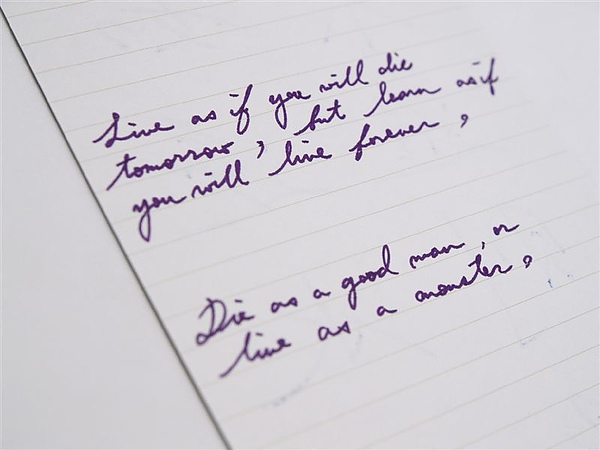 Live as if you will die
tomorrow, but learn as if
you will live forever,
Die as a good man, or
live as a monster,